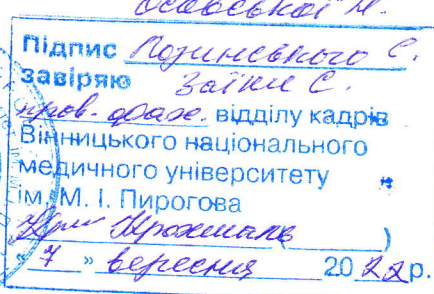 Підпис Лозинського С.
завіряю Заїки С.
пров. фах. відділу кадрів
Вінницького національного
медичного університету
ім. М. І. Пирогова
( )
" 7 " вересня 2022р.